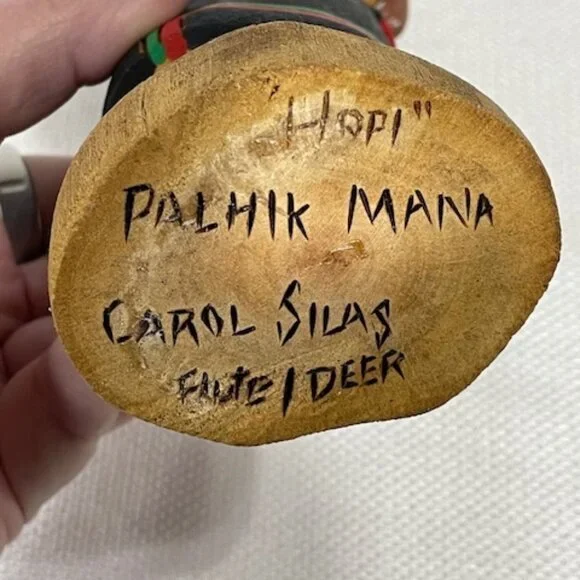 "HOPI"
PALHIK MANA
CAROL SILAS
FLUTE / DEER